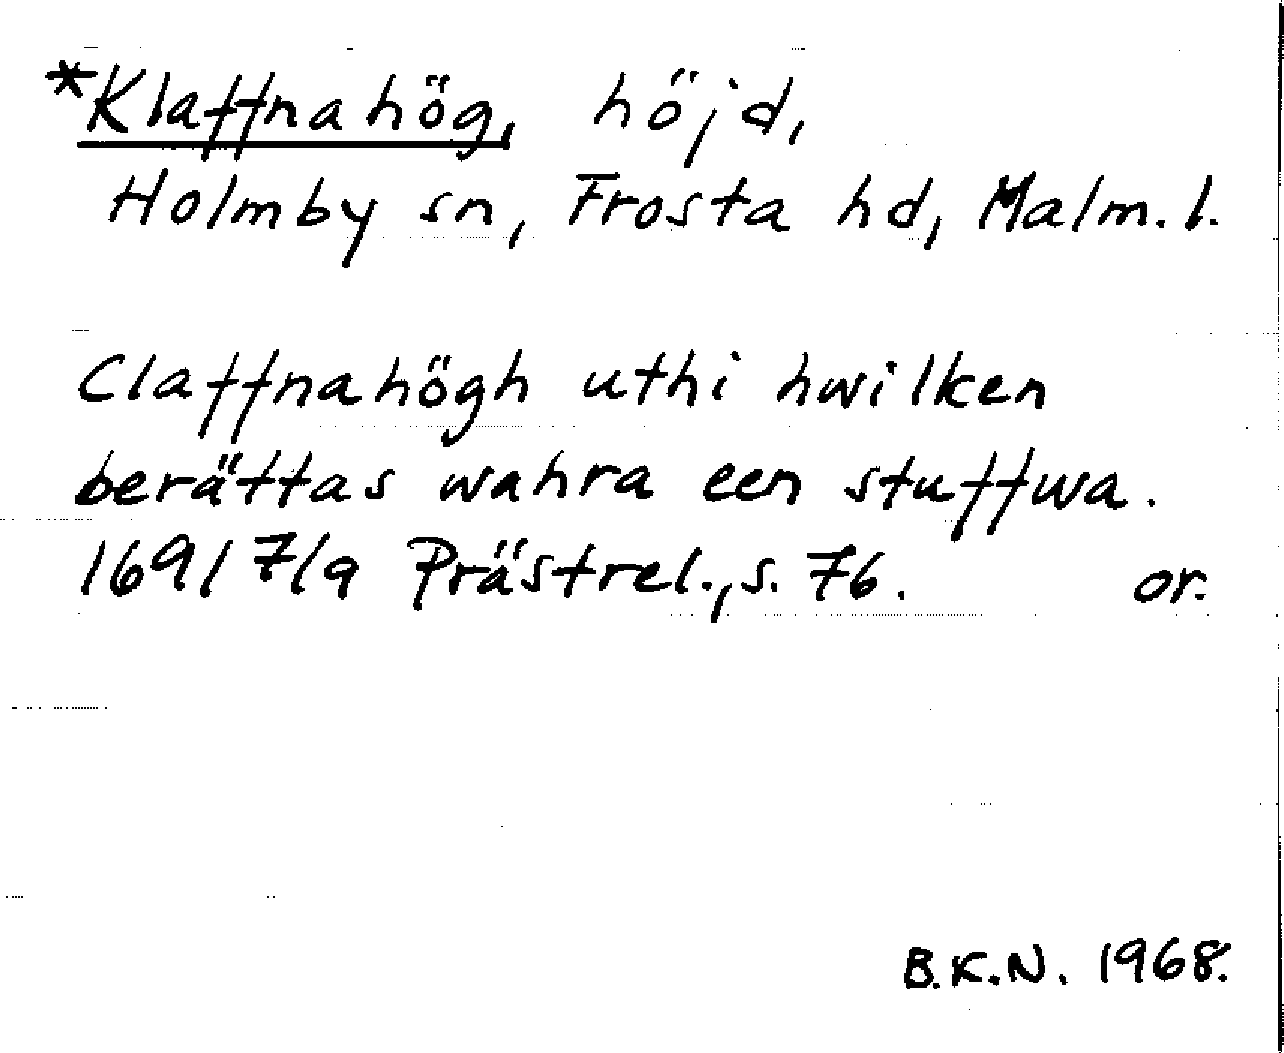 *Klaffnahög, höjd,
Holmby sn, Frosta hd, Malm. l.
Claffnahögh uthi hwilken
berättas wahra een stuffwa.
1691 7/9 Prästrel., s. 76. or.
B.K.N. 1968.